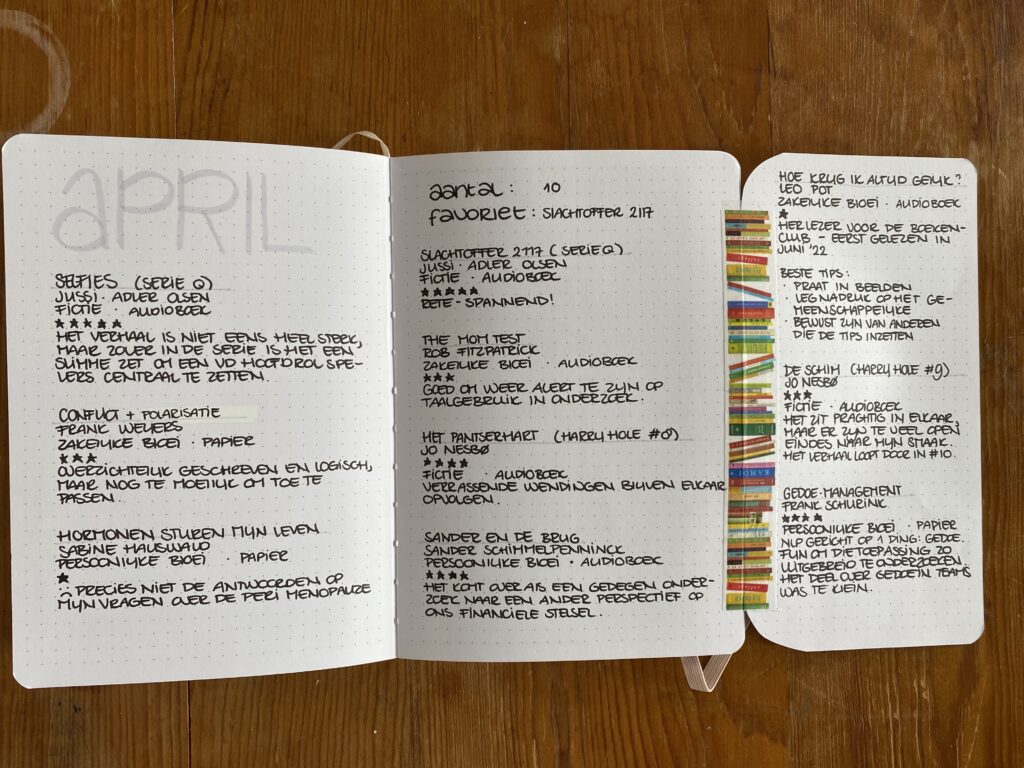 APRIL
SELFIES (SERIE Q)
JUSSI · ADLER OLSEN
FICTIE · AUDIOBOEK
★★★★★
HET VERHAAL IS NIET EENS HEEL STERK,
MAAR ZOVER IN DE SERIE IS HET EEN
SLIMME ZET OM EEN VD HOOFDROLSPE-
LERS CENTRAAL TE ZETTEN.
CONFLICT + POLARISATIE
FRANK WEIJERS
ZAKELIJKE BIOEI · PAPIER
★★★
OVERZICHTELIJK GESCHREVEN EN LOGISCH,
MAAR NOG TE MOEILIJK OM TOE TE
PASSEN.
HORMONEN STUREN MIJN LEVEN
SABINE HAUSWALD
PERSOONLIJKE BIOEI · PAPIER
★
PRECIES NIET DE ANTWOORDEN OP
MIJN VRAGEN OVER DE PERI MENOPAUZE
aantal: 10
favoriet: SLACHTOFFER 2117
SLACHTOFFER 2117 (SERIE Q)
JUSSI · ADLER OLSEN
FICTIE · AUDIOBOEK
★★★★★
RETE-SPANNEND!
THE MOM TEST
ROB FITZPATRICK
ZAKELIJKE BIOEI · AUDIOBOEK
★★★
GOED OM WEER ALERT TE ZIJN OP
TAALGEBRUIK IN ONDERZOEK.
HET PANTSERHART (HARRY HOLE #8)
JO NESBØ
★★★★
FICTIE · AUDIOBOEK
VERRASSENDE WENDINGEN BLIJVEN ELKAAR
OPVOLGEN.
SANDER EN DE BRUG
SANDER SCHIMMELPENNINCK
PERSOONLIJKE BIOEI · AUDIOBOEK
★★★★
HET KOMT OVER ALS EEN GEDEGEN ONDER-
ZOEK NAAR EEN ANDER PERSPECTIEF OP
ONS FINANCIELE STELSEL.
HOE KRIJG IK ALTIJD GELIJK?
LEO POT
ZAKELIJKE BIOEI · AUDIOBOEK
★
HERLEZEN VOOR DE BOEKEN-
CLUB - EERST GELEZEN IN
JUNI '22
BESTE TIPS:
· PRAAT IN BEELDEN
· LEG NADRUK OP HET GE-
MEENSCHAPPELIJKE
· BEWUST ZIJN VAN ANDEREN
DIE DE TIPS INZETTEN
DE SCHIM (HARRY HOLE #9)
JO NESBØ
★★★
FICTIE · AUDIOBOEK
HET ZIT PRACHTIG IN ELKAAR,
MAAR ER ZIJN TE VEEL OPEN
EINDES NAAR MIJN SMAAK.
HET VERHAAL LOOPT DOOR IN #10.
GEDOE-MANAGEMENT
FRANK SCHURINK
★★★★
PERSOONLIJKE BIOEI · PAPIER
NLP GERICHT OP 1 DING: GEDOE.
FIJN OM DIE TOEPASSING ZO
UITGEBREID TE ONDERZOEKEN.
HET DEEL OVER GEDOE IN TEAMS
WAS TE KLEIN.